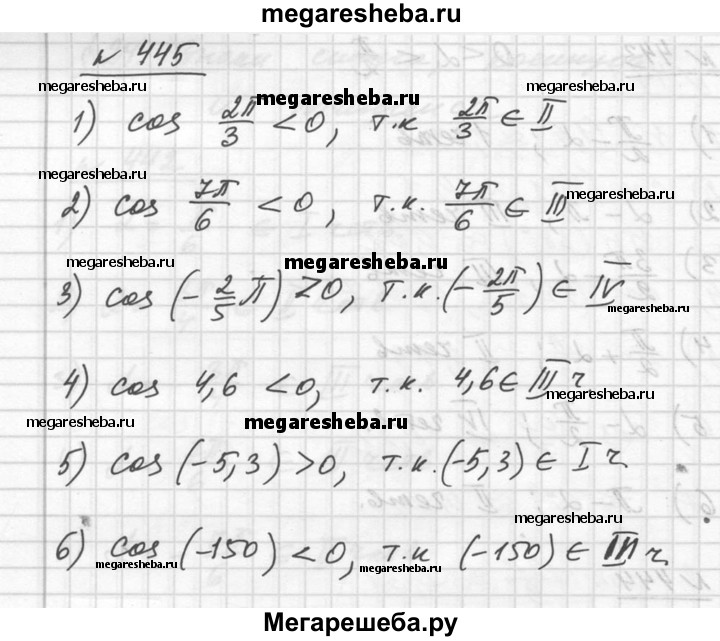 megaresheba.ru
№ 445
megaresheba.ru megaresheba.ru megaresheba.ru
1) cos 2π/3 < 0, т.к 2π/3 ∈ II
megaresheba.ru megaresheba.ru
2) cos 7π/6 < 0, т.к. 7π/6 ∈ III
megaresheba.ru megaresheba.ru
3) cos (-2/5 π) > 0, т.к. (-2π/5) ∈ IV
megaresheba.ru
4) cos 4,6 < 0, т.к. 4,6 ∈ III ч.
megaresheba.ru megaresheba.ru megaresheba.ru
5) cos (-5,3) > 0, т.к. (-5,3) ∈ I ч.
megaresheba.ru
6) cos (-150) < 0, т.к (-150) ∈ III ч.
megaresheba.ru megaresheba.ru megaresheba.ru
Мегарешеба.ру